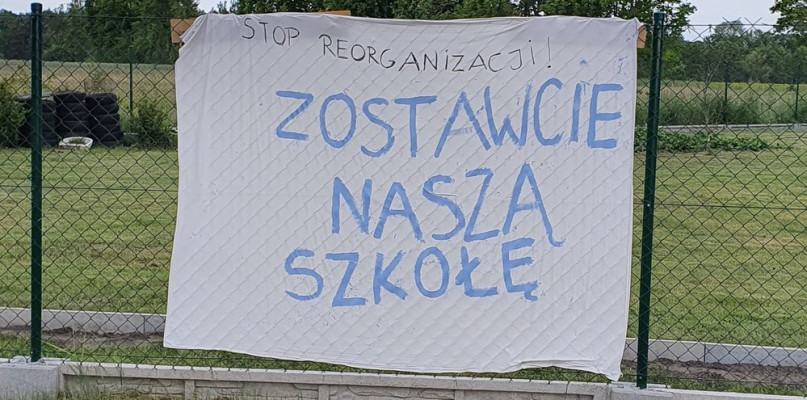 STOP REORGANIZACJI!
ZOSTAWCIE
NASZĄ
SZKOŁĘ